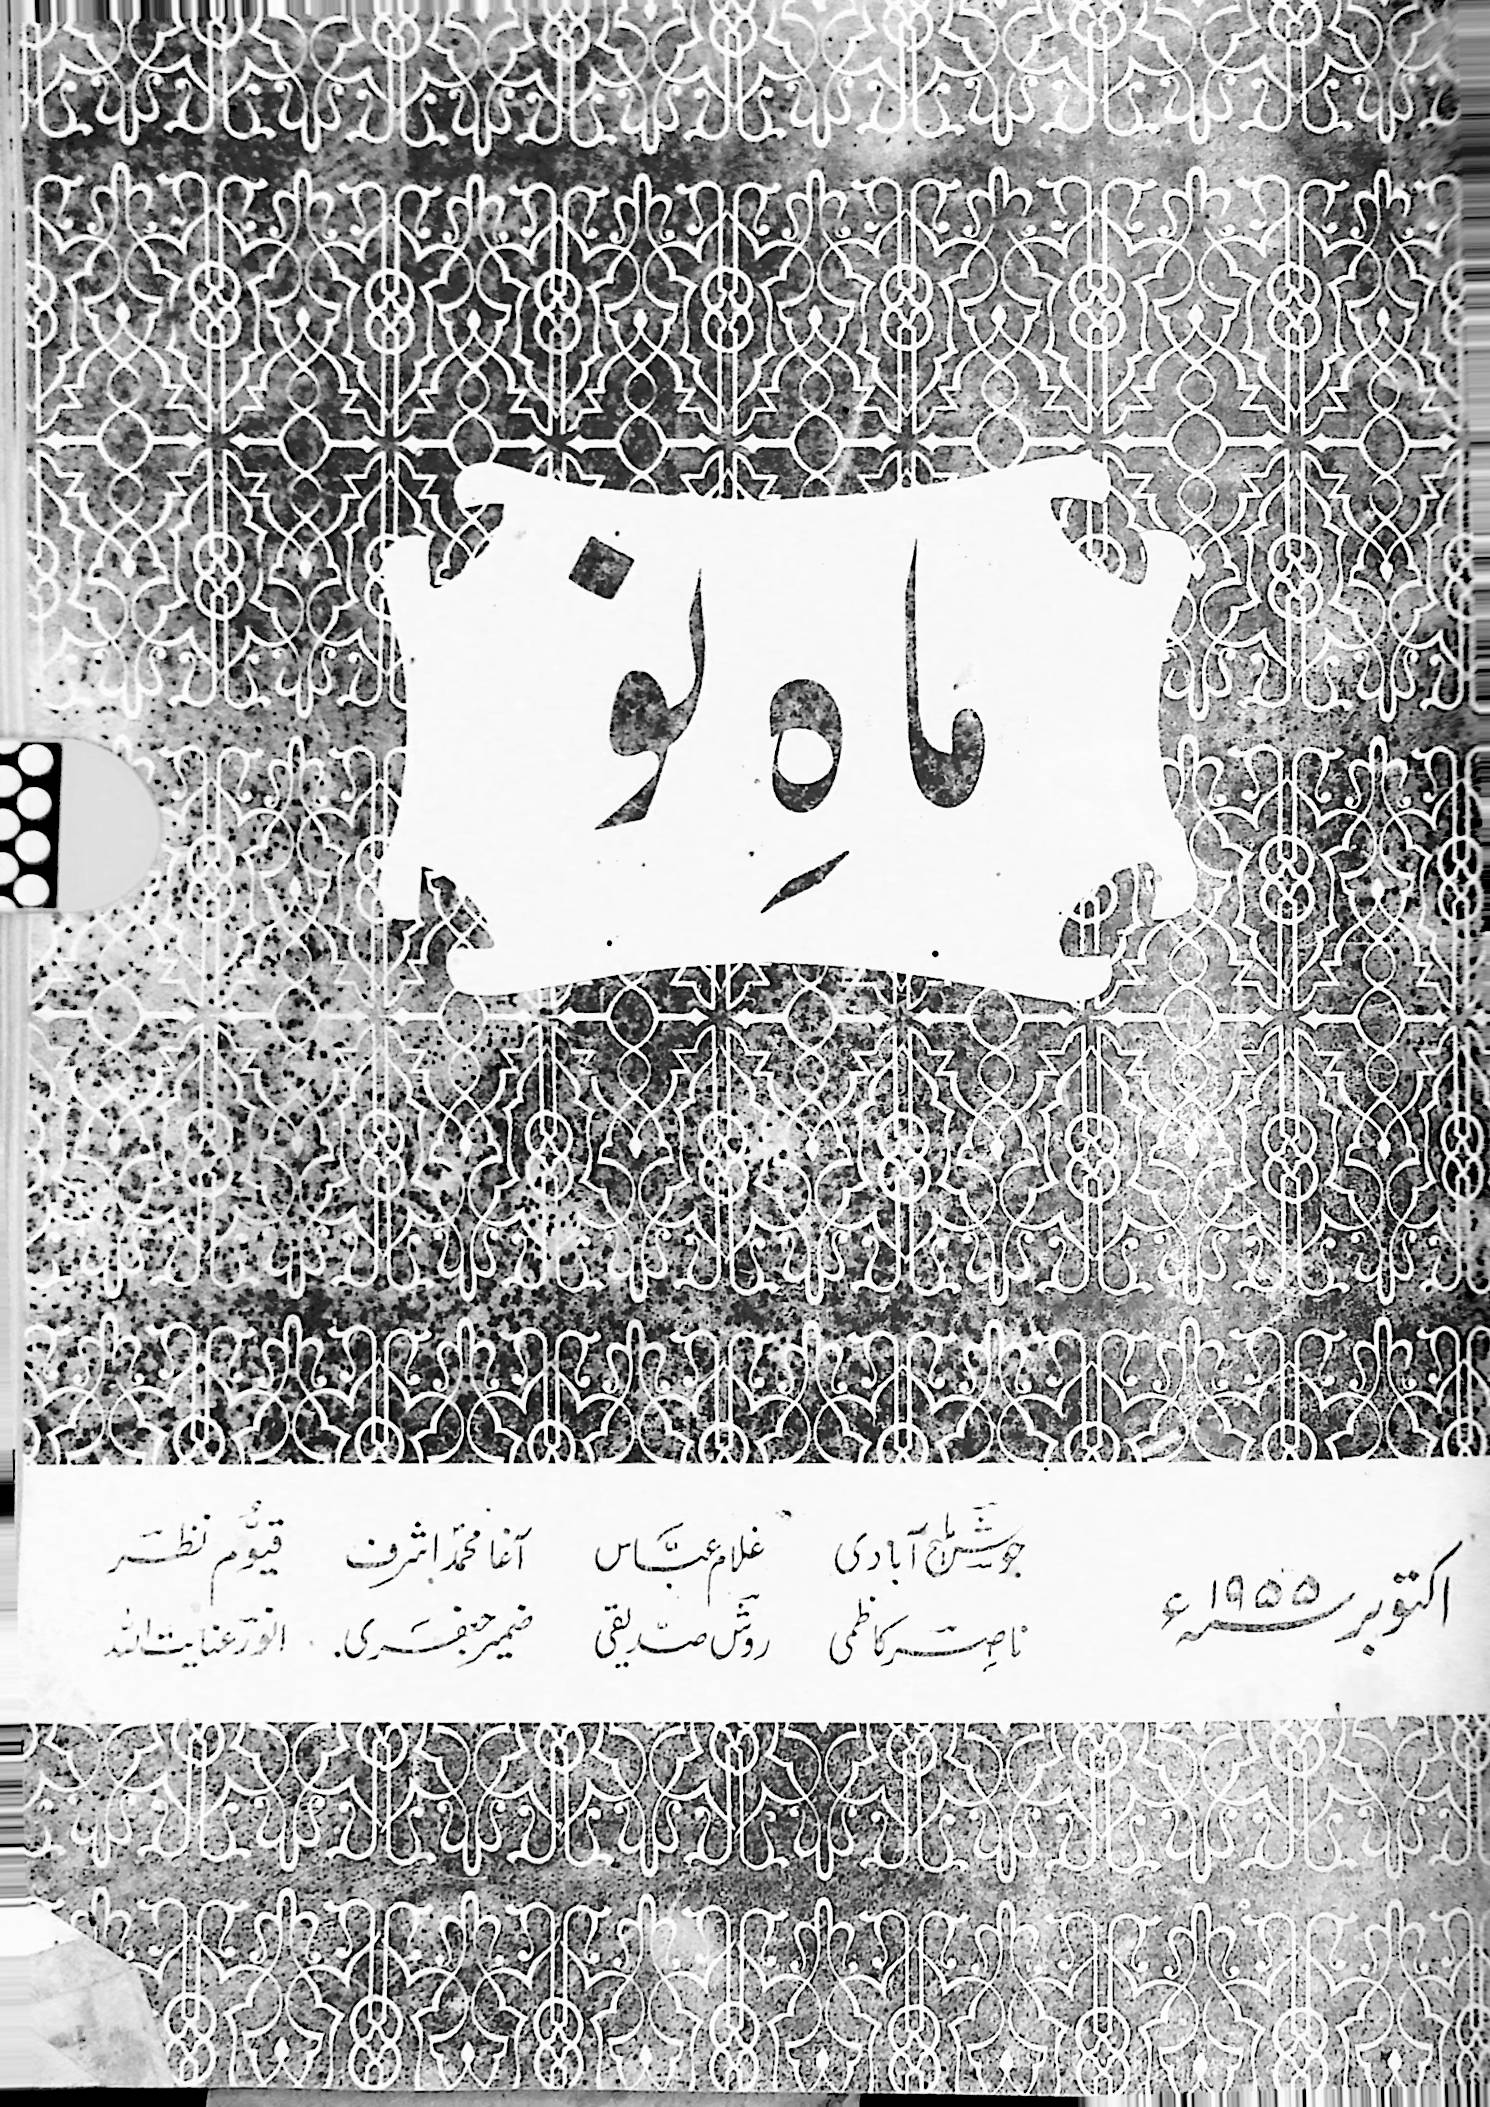 ماہِ نو
اکتوبر ۱۹۵۵ء
جوش ملیح آبادی غلام عباس آغا محمد اشرف قیوم نظر
ناصر کاظمی روش صدیقی ضمیر جعفری۔ انور عنایت اللہ